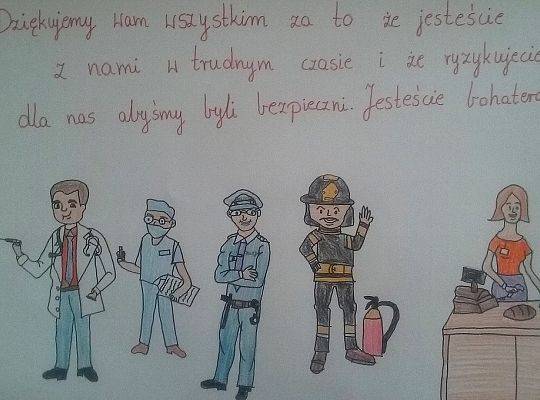 Dziękujemy wam wszystkim za to że jesteście
z nami w trudnym czasie i że ryzykujecie
dla nas abyśmy byli bezpieczni. Jesteście bohatera